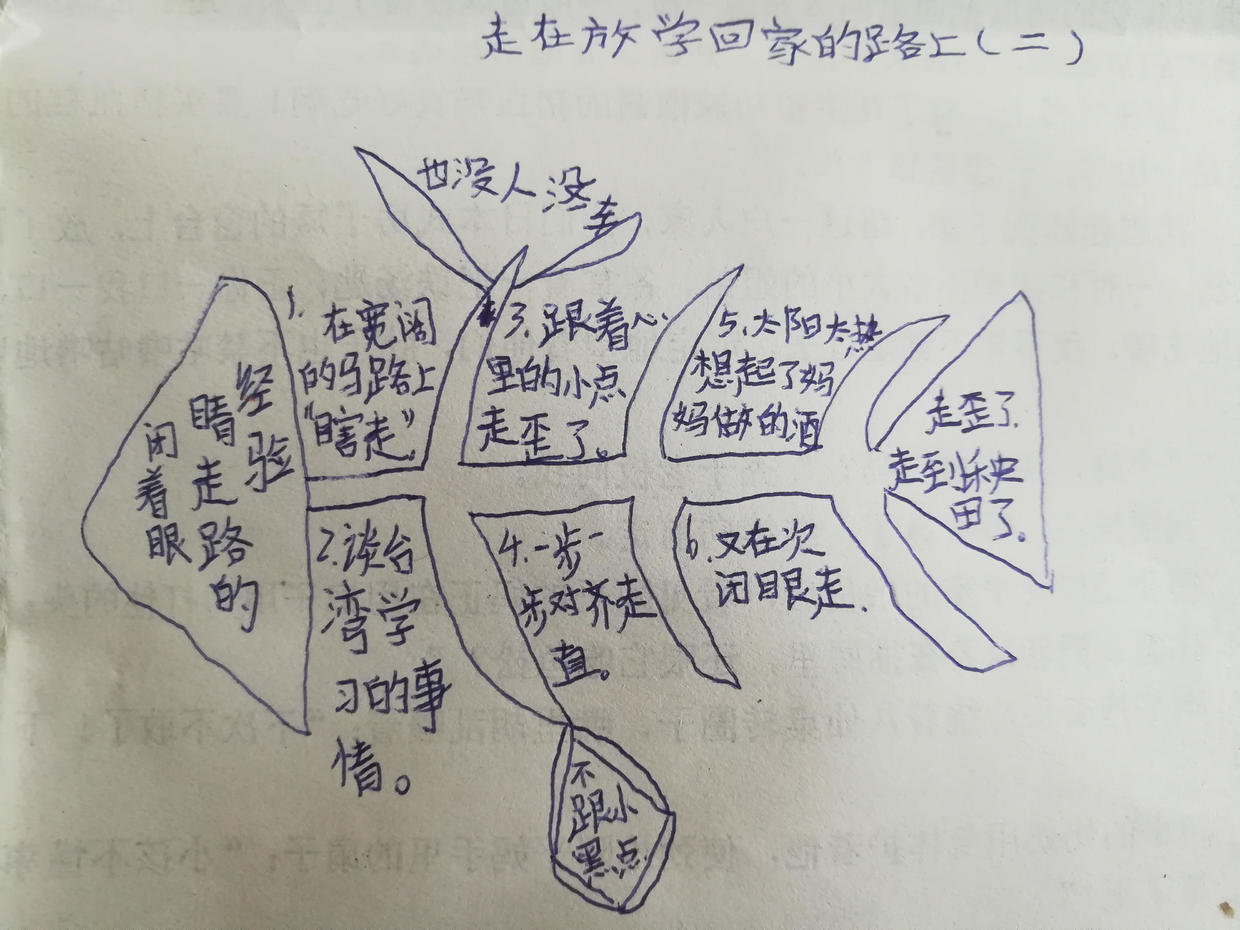 走在放学回家的路上(二)
闭着眼
睛走路的
经验
也没人没车
1. 在宽阔
的马路上
“瞎走”.
2. 谈台
湾学
习的事
情。
3. 跟着心
里的小点
走歪了。
4. 一步一
步对齐走
直。
不
跟小
黑点
5. 太阳太热
想起了妈
妈做的酒
6. 又在次
闭目眼走.
走歪了.
走到秧
田了.